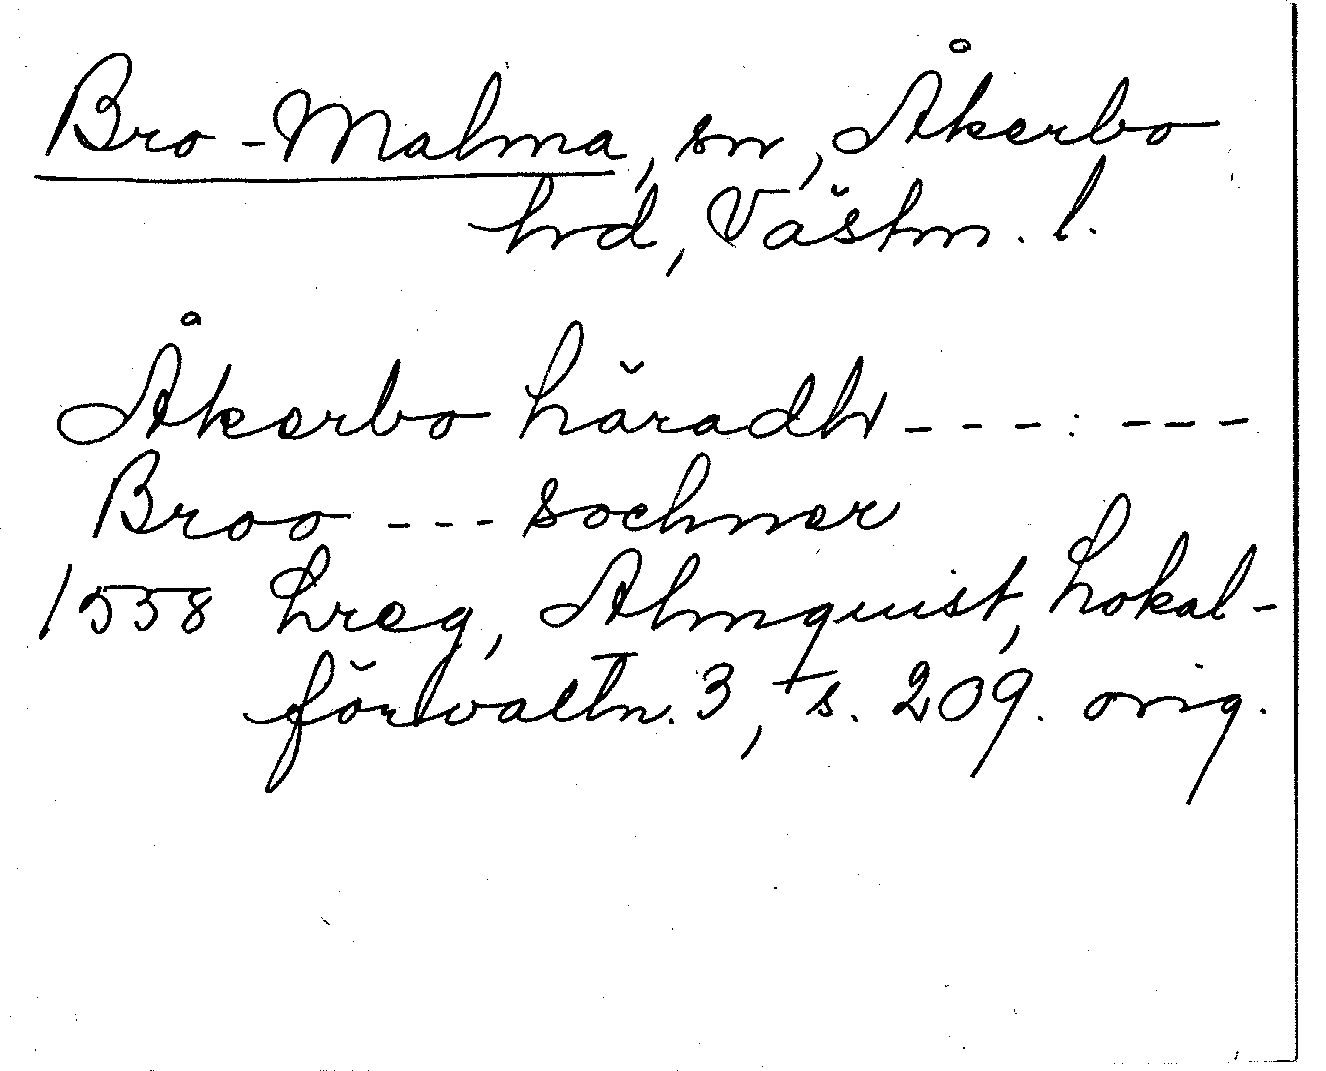 Bro-Malma, sn, Åkerbo
hrd, Västm. l.
Åkerbo häradh - - - : - - -
Broo - - - sochner
1558 Lreg, Almquist, Lokal-
förvaltn. 3, s. 209. orig.